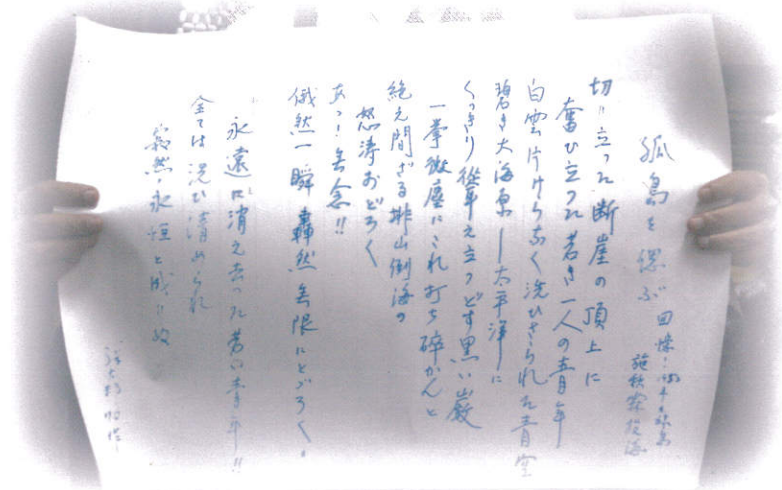 孤島を偲ぶ
切り立つた断崖の頂上に
奮ひ立つた若き一人の青年
白雲片けらなく洗ひさられた青空
碧き大海原ー太平洋に
くっきり聳え立つどす黒い巌
一挙微塵にこれ打ち砕かんと
絶え間ざる排山倒海の
怒涛おどろく
あっ!無念!!
俄然一瞬轟然無限にとゞろく!
永遠に消え去った若い青年!!
全ては洗ひ清められ
寂然永恒と成り